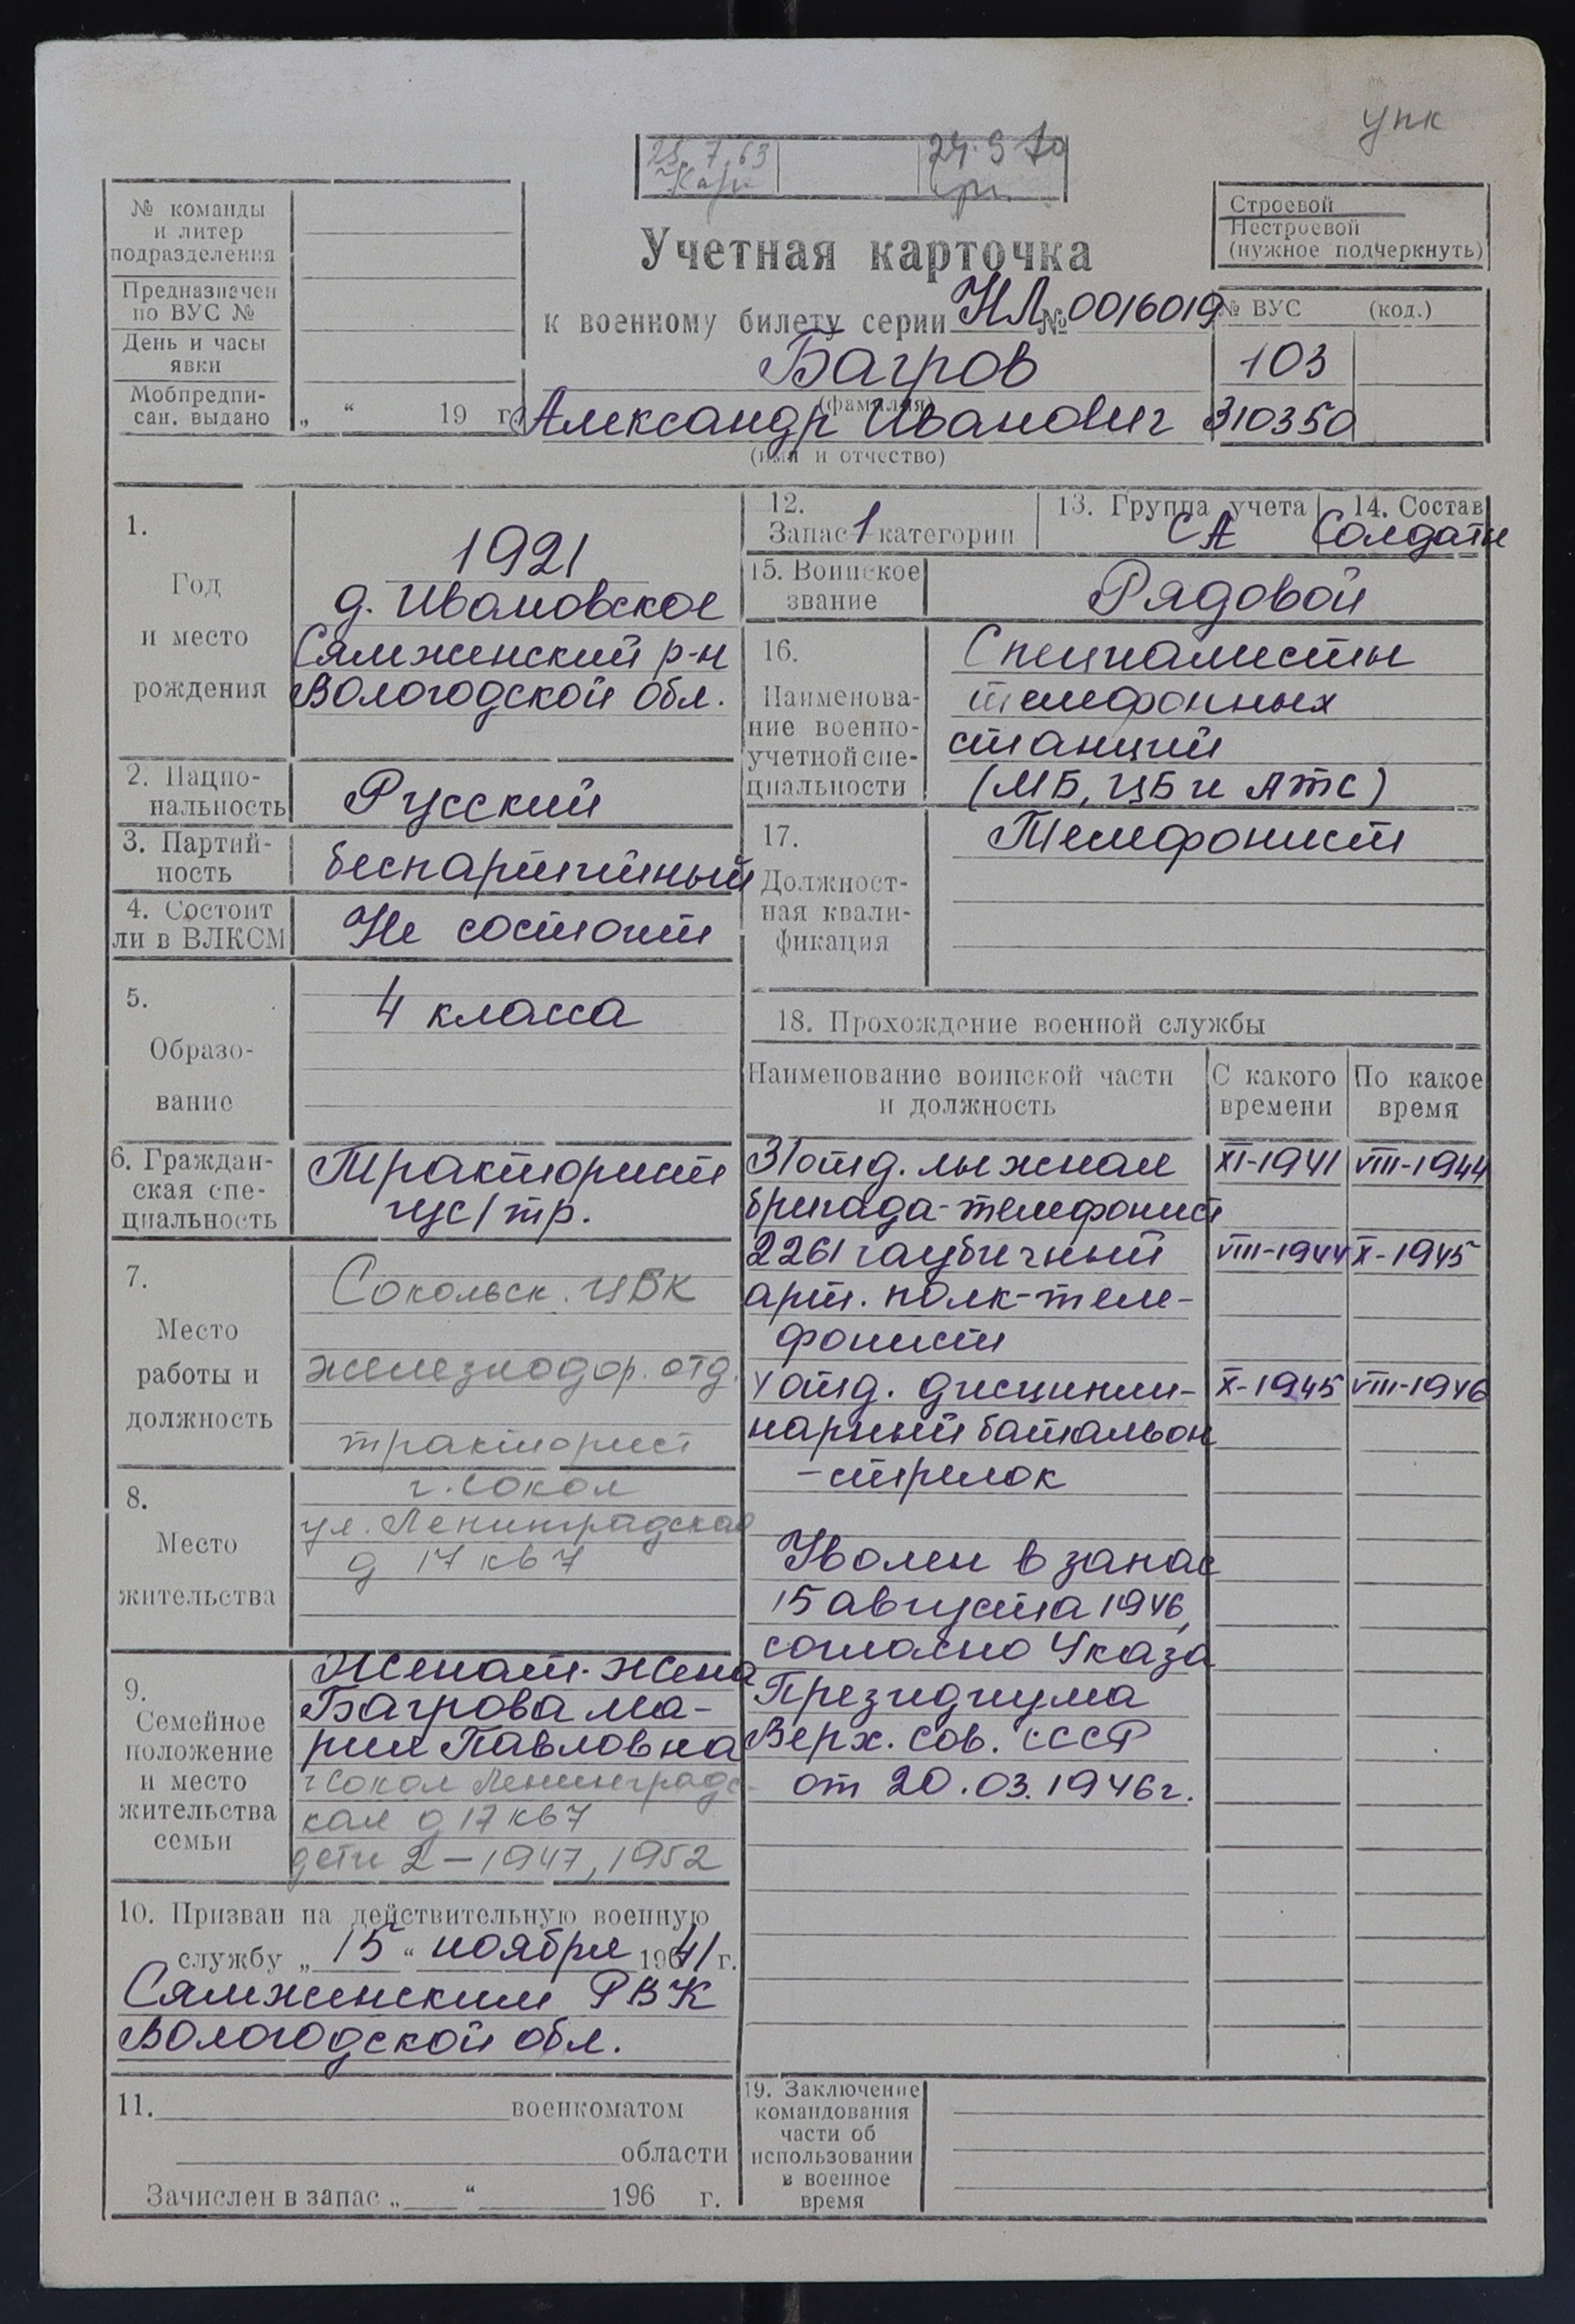 упк
25.7.63
24.9.70
№ команды
и литер
подразделения
Предназначен
по ВУС №
День и часы
явки
Мобпредпи-
сан. выдано „ “ 19 г.
Учетная карточка
к военному билету серии НЛ № 0016019
Багров
(фамилия)
Александр Иванович
(имя и отчество)
Строевой
Нестроевой
(нужное подчеркнуть)
№ ВУС (код.)
103
310350
1.
Год
и место
рождения
1921
д. Ивановское
Сямженский р-н
Вологодской обл.
2. Нацио-
нальность
Русский
3. Партий-
ность
беспартийный
4. Состоит
ли в ВЛКСМ
Не состоит
5.
Образо-
вание
4 класса
6. Граждан-
ская спе-
циальность
Тракторист
гус/тр.
7.
Место
работы и
должность
Сокольск. ЦБК
железнодор. отд.
тракторист
8.
Место
жительства
г. Сокол
ул. Ленинградская
д 17 кв 7
9.
Семейное
положение
и место
жительства
семьи
Женат. Жена
Багрова Ма-
рия Павловна
г Сокол Ленинградс-
кая д 17 кв 7
дети 2 – 1947, 1952
10. Призван на действительную военную
службу „ 15 “ ноября 1941 г.
Сямженским РВК
Вологодской обл.
11. военкоматом
области
Зачислен в запас „ “ 196 г.
12.
Запас 1 категории
13. Группа учета
СА
14. Состав
Солдаты
15. Воинское
звание
Рядовой
16.
Наименова-
ние военно-
учетной спе-
циальности
Специалисты
телефонных
станций
(МБ, ЦБ и АТС)
17.
Должност-
ная квали-
фикация
Телефонист
18. Прохождение военной службы
Наименование воинской части
и должность
С какого
времени
По какое
время
31 отд. лыжная XI-1941 VIII-1944
бригада-телефонист
2261 гаубичный VIII-1944 X-1945
арт. полк-теле-
фонист
4 отд. дисципли- X-1945 VIII-1946
нарный батальон
-стрелок
Уволен в запас
15 августа 1946,
согласно Указа
Президиума
Верх. Сов. СССР
от 20.03.1946г.
19. Заключение
командования
части об
использовании
в военное
время